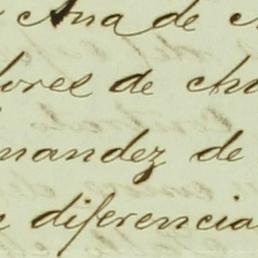 Ana de
lores de
nandez de
diferencia